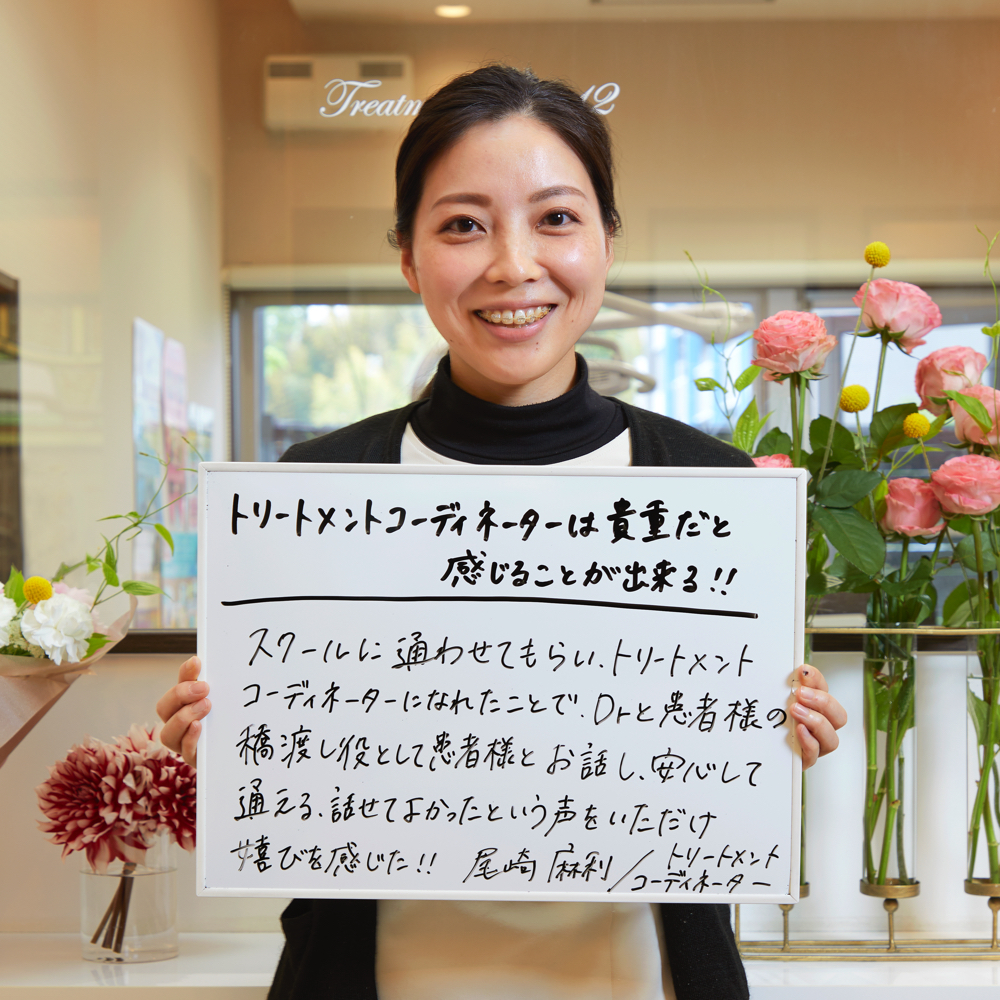 Treatm
12
トリートメントコーディネーターは貴重だと
感じることが出来る!!
スクールに通わせてもらい、トリートメント
コーディネーターになれたことで、Drと患者様の
橋渡し役として患者様とお話し、安心して
通える、話せてよかったという声をいただけ
嬉びを感じた!! 尾崎 麻利/トリートメント
コーディネーター